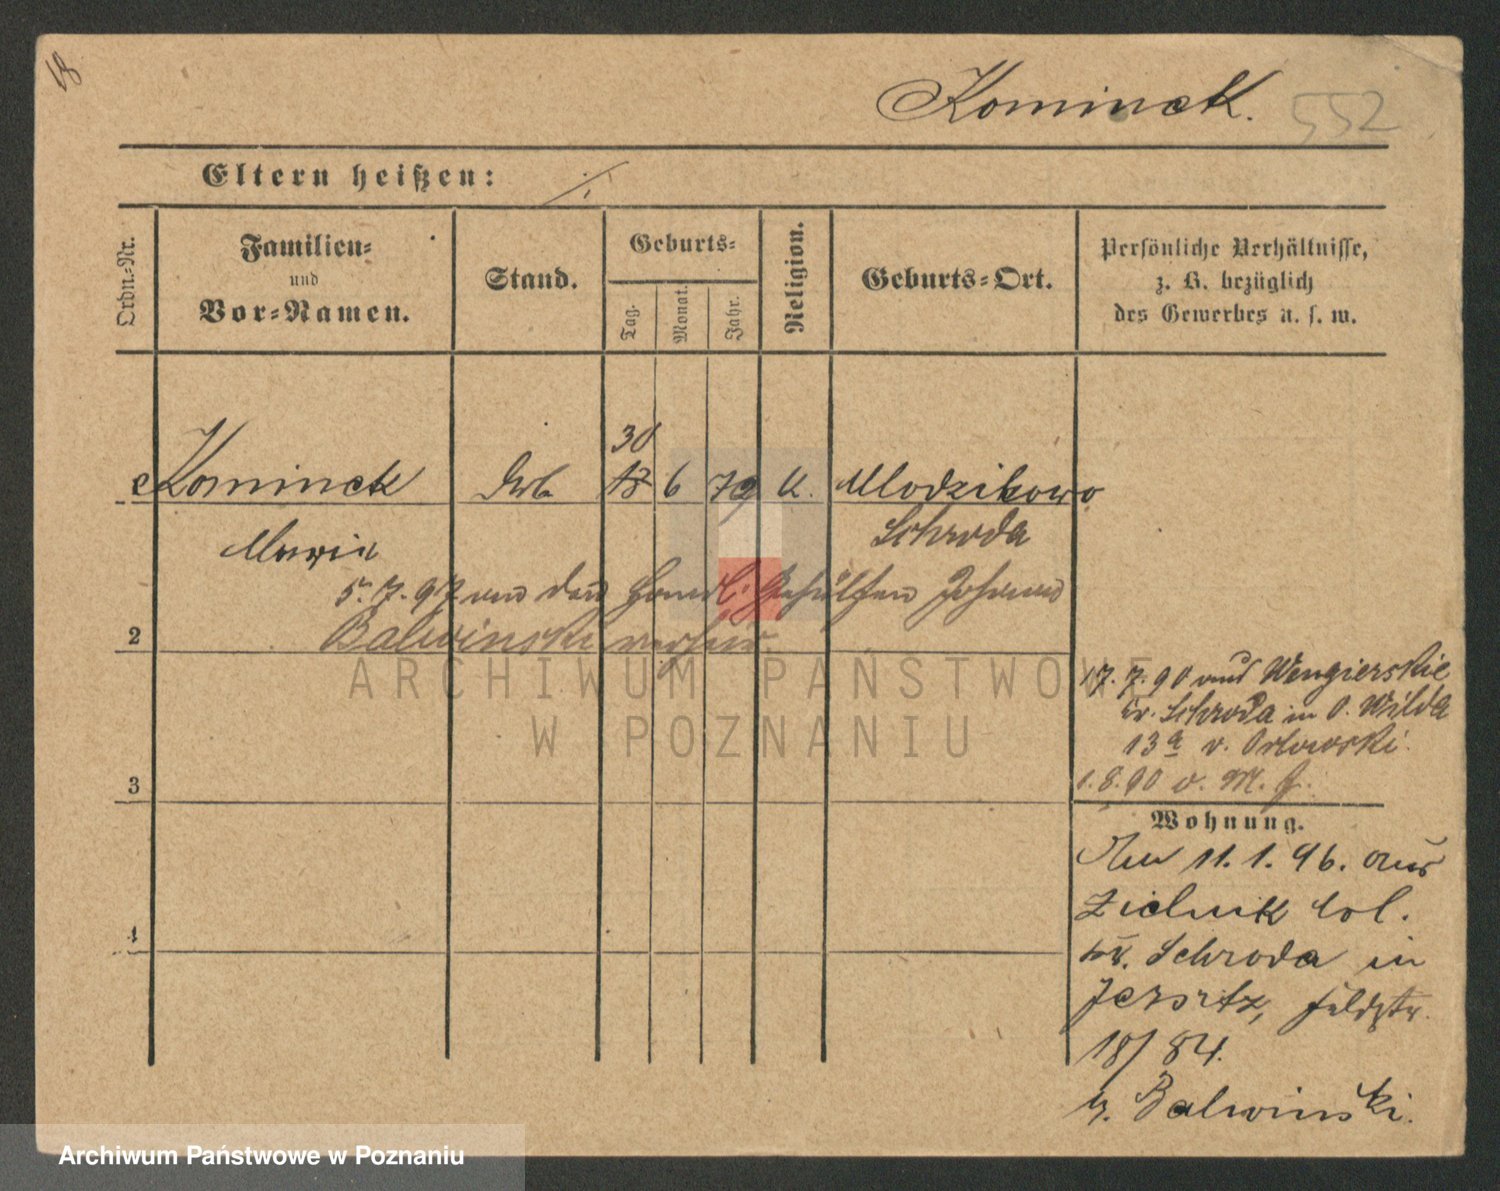 18
Kominek. 552
Eltern heißen: ./.
Ordn.-Nr.
Familien- und Vor-Namen.
Stand.
Geburts-
Tag. Monat. Jahr.
Religion.
Geburts-Ort.
Persönliche Verhältnisse,
z. B. bezüglich
des Gewerbes u. s. w.
30
Kominek 18 6 79 k. Mlodzikowo
Maria Schroda
5.7.97 Handl. Gehülfen Johann
2 Balwinski
ARCHIWUM PAŃSTWOWE
W POZNANIU
17.7.90 aus Wengierskie
Kr. Schroda in O. Wilda
13a v. Orlowski.
3
1.8.90 v.
Wohnung.
Am 11.1.96. aus
Zielnik Col.
4
Kr. Schroda in
Jersitz, Feldstr.
18/84.
b. Balwinski.
Archiwum Państwowe w Poznaniu